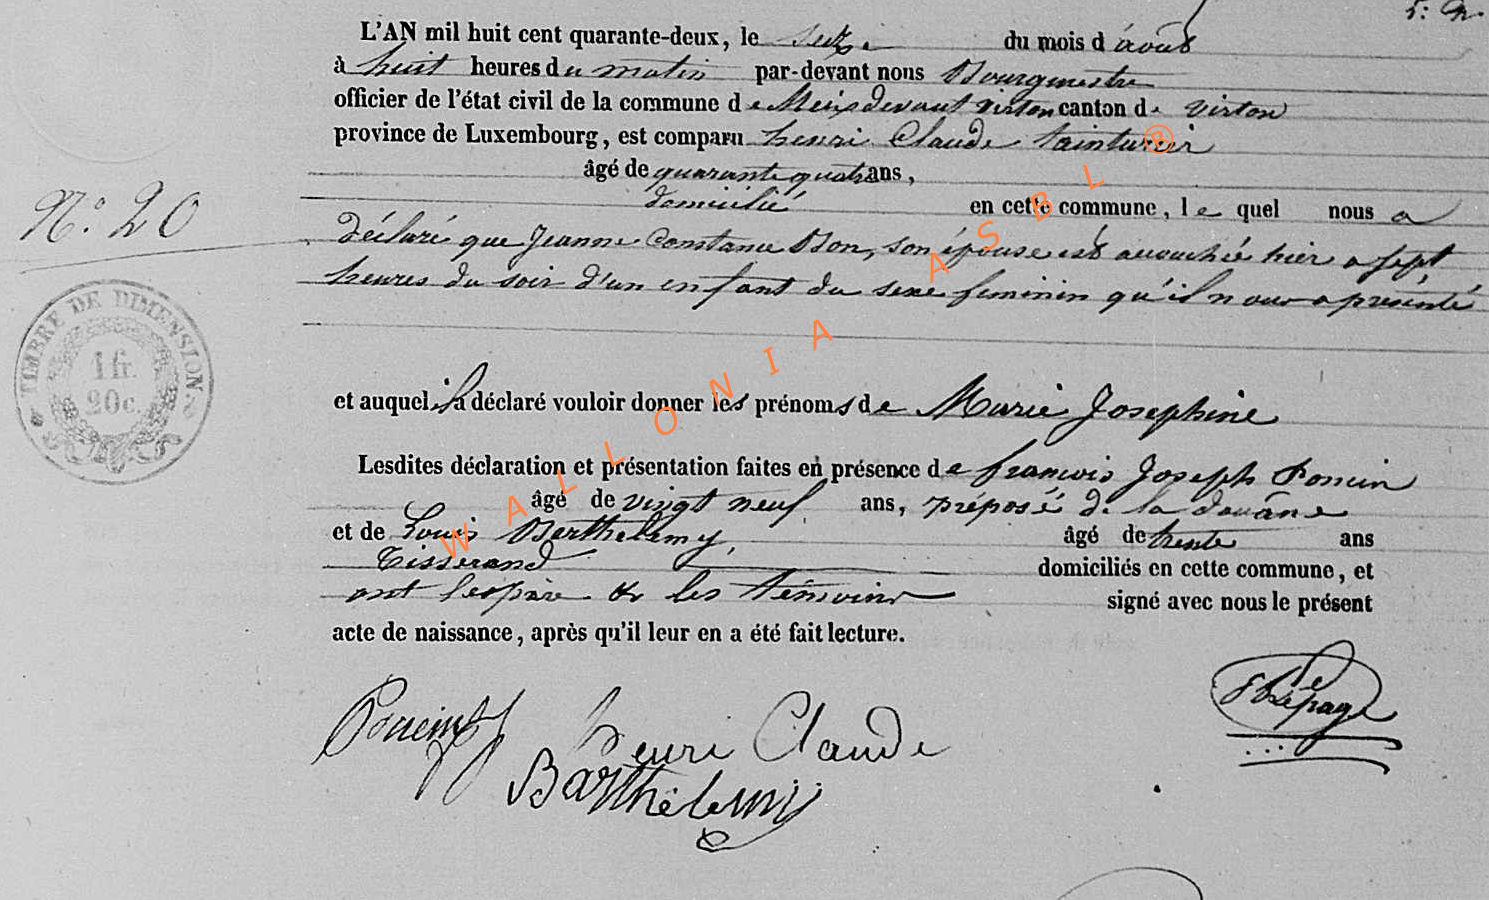 L'AN mil huit cent quarante-deux, le seize du mois d'août
à huit heures du matin par-devant nous Bourgmestre
officier de l'état civil de la commune de Meix devant virton canton de virton
province de Luxembourg, est comparu henri Claude tainturier
âgé de quarante quatre ans,
domicilié en cette commune, le quel nous a
N.º 20
déclaré que Jeanne Constance Bon, son épouse est accouchée hier a sept
heures du soir d'un enfant du sexe feminin qu'il nous a présenté
TIMBRE DE DIMENSION.
1 fr.
20 c.
et auquel il a déclaré vouloir donner les prénoms de Marie Josephine
Lesdites déclaration et présentation faites en présence de francois Joseph Poncin
âgé de vingt neuf ans, préposé de la douâne
et de Louis Barthelemy, âgé de trente ans
Tisserand domiciliés en cette commune, et
ont le père & les témoins signé avec nous le présent
acte de naissance, après qu'il leur en a été fait lecture.
Lepage
Poncin henri Claude
Barthélemy
WALLONIA ASBL ®